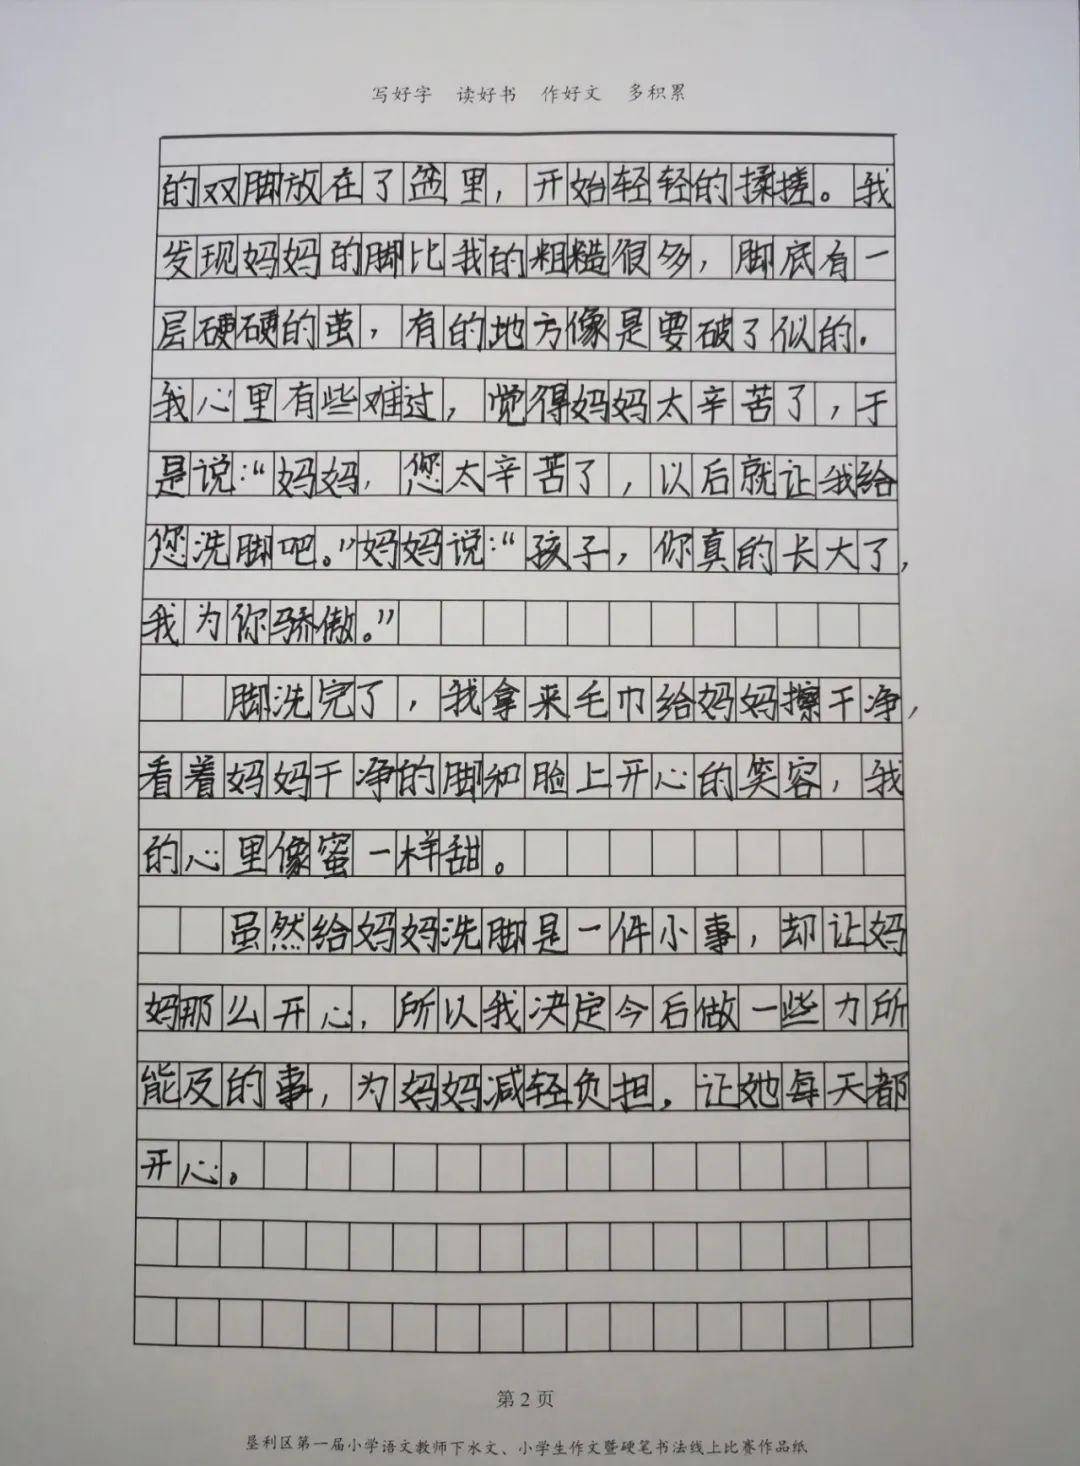 写好字 读好书 作好文 多积累
的双脚放在了盆里，开始轻轻的揉搓。我
发现妈妈的脚比我的粗糙很多，脚底有一
层硬硬的茧，有的地方像是要破了似的.
我心里有些难过，觉得妈妈太辛苦了，于
是说:“妈妈，您太辛苦了，以后就让我给
您洗脚吧。”妈妈说:“孩子，你真的长大了，
我为你骄傲。”
脚洗完了，我拿来毛巾给妈妈擦干净，
看着妈妈干净的脚和脸上开心的笑容，我
的心里像蜜一样甜。
虽然给妈妈洗脚是一件小事，却让妈
妈那么开心，所以我决定今后做一些力所
能及的事，为妈妈减轻负担，让她每天都
开心。
第2页
垦利区第一届小学语文教师下水文、小学生作文暨硬笔书法线上比赛作品纸